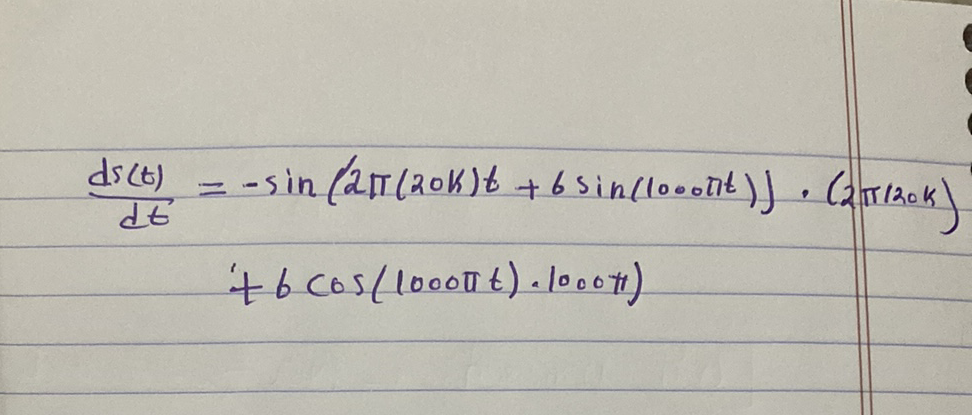 ds(t)/dt = -sin(2π(20K)t + 6 sin(1000πt)) · (2π(20K)
+ 6 cos(1000πt) · 1000π)